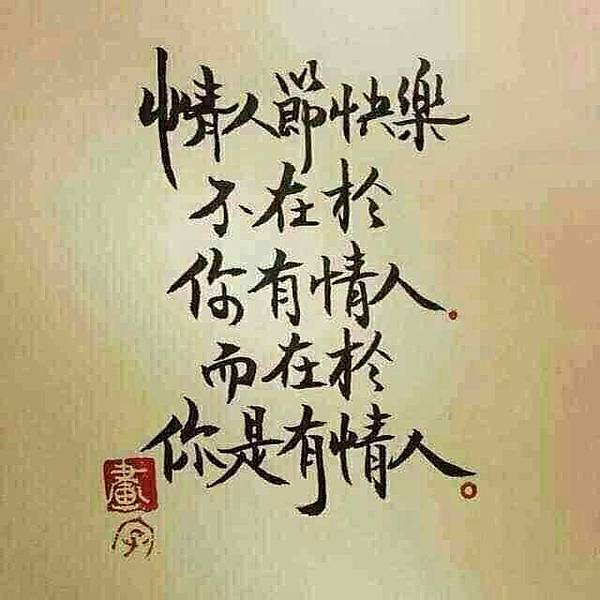 情人節快樂
不在於
你有情人。
而在於
你是有情人。
畫
字